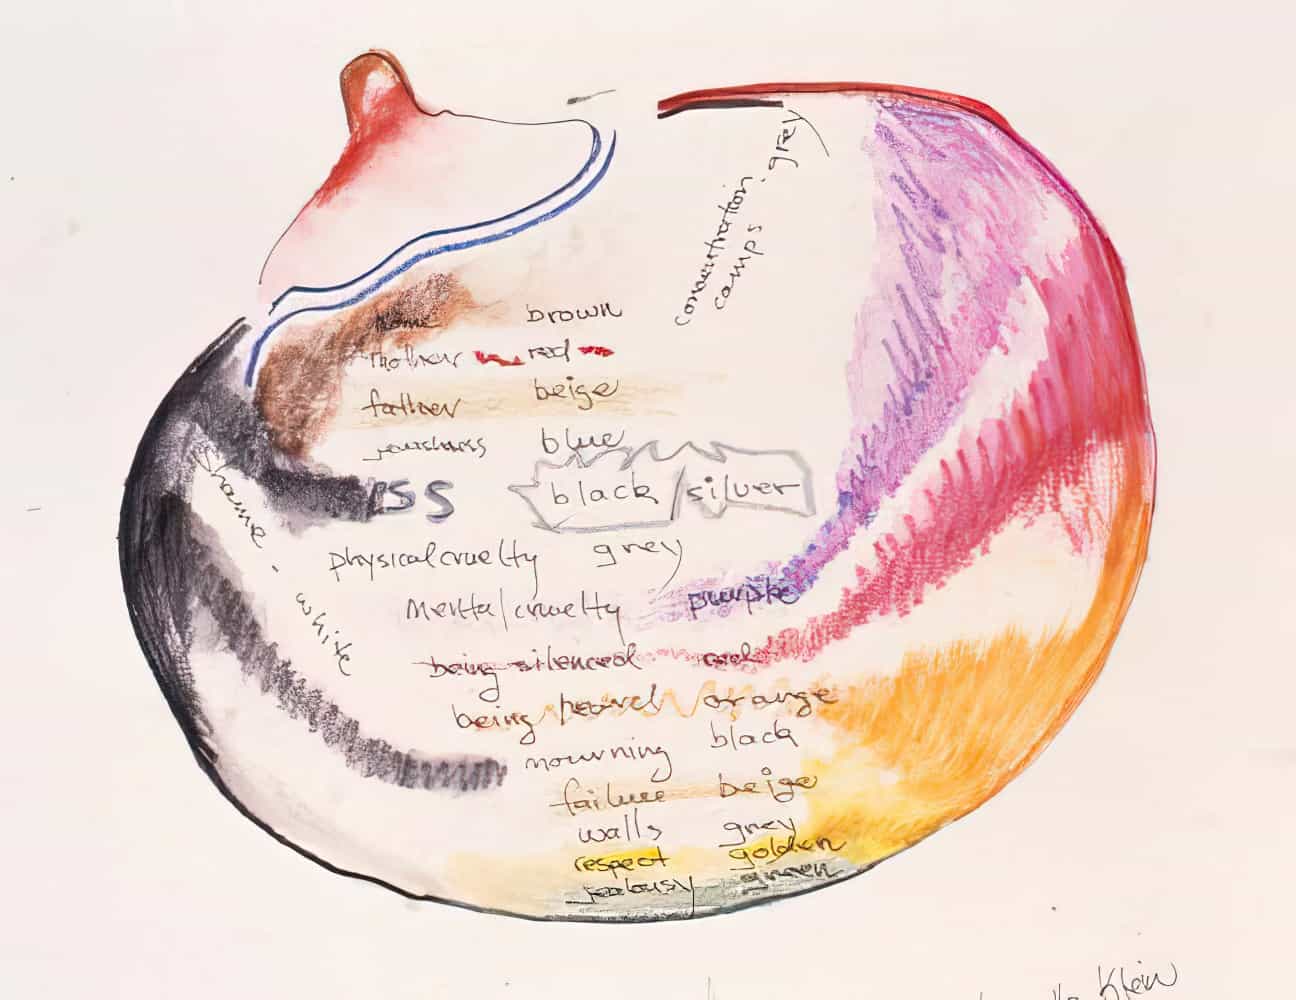 concentration camps. grey
home brown
mother red
father beige
jewishness blue
SS black/silver
shame. white
physical cruelty grey
Mental cruelty purple
being silenced red
being heard orange
mourning black
failure beige
walls grey
respect golden
jealousy green
Klein